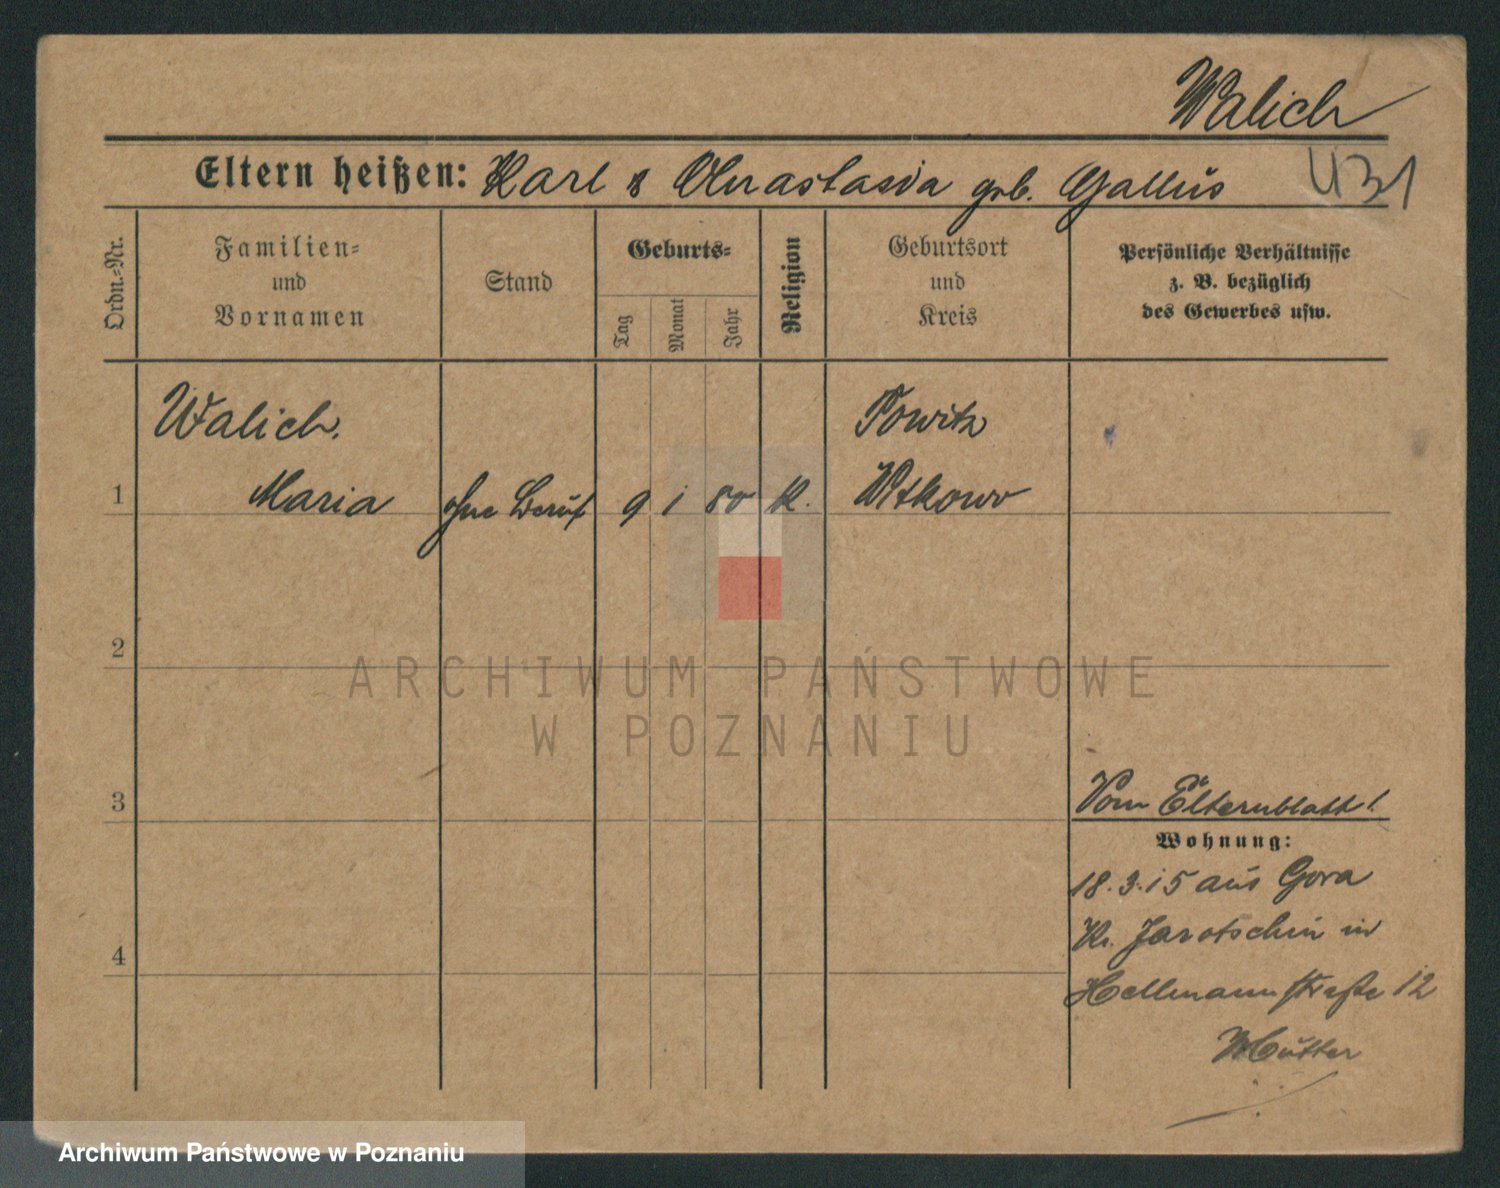 Walich
Eltern heißen: Karl & Anastasia geb. Gallus
431
Ordn.-Nr.
Familien-
und
Vornamen
Stand
Geburts-
Tag
Monat
Jahr
Religion
Geburtsort
und
Kreis
Persönliche Verhältnisse
z. B. bezüglich
des Gewerbes usw.
Walich.
Powitz
1 Maria ohne Beruf 9 1 80 K. Witkowo
2
ARCHIWUM PAŃSTWOWE
W POZNANIU
3
Vom Elternblatt!
Wohnung:
18.3.15 aus Gora
Kr. Jarotschin in
4
Hellmannstraße 12
Mutter
Archiwum Państwowe w Poznaniu